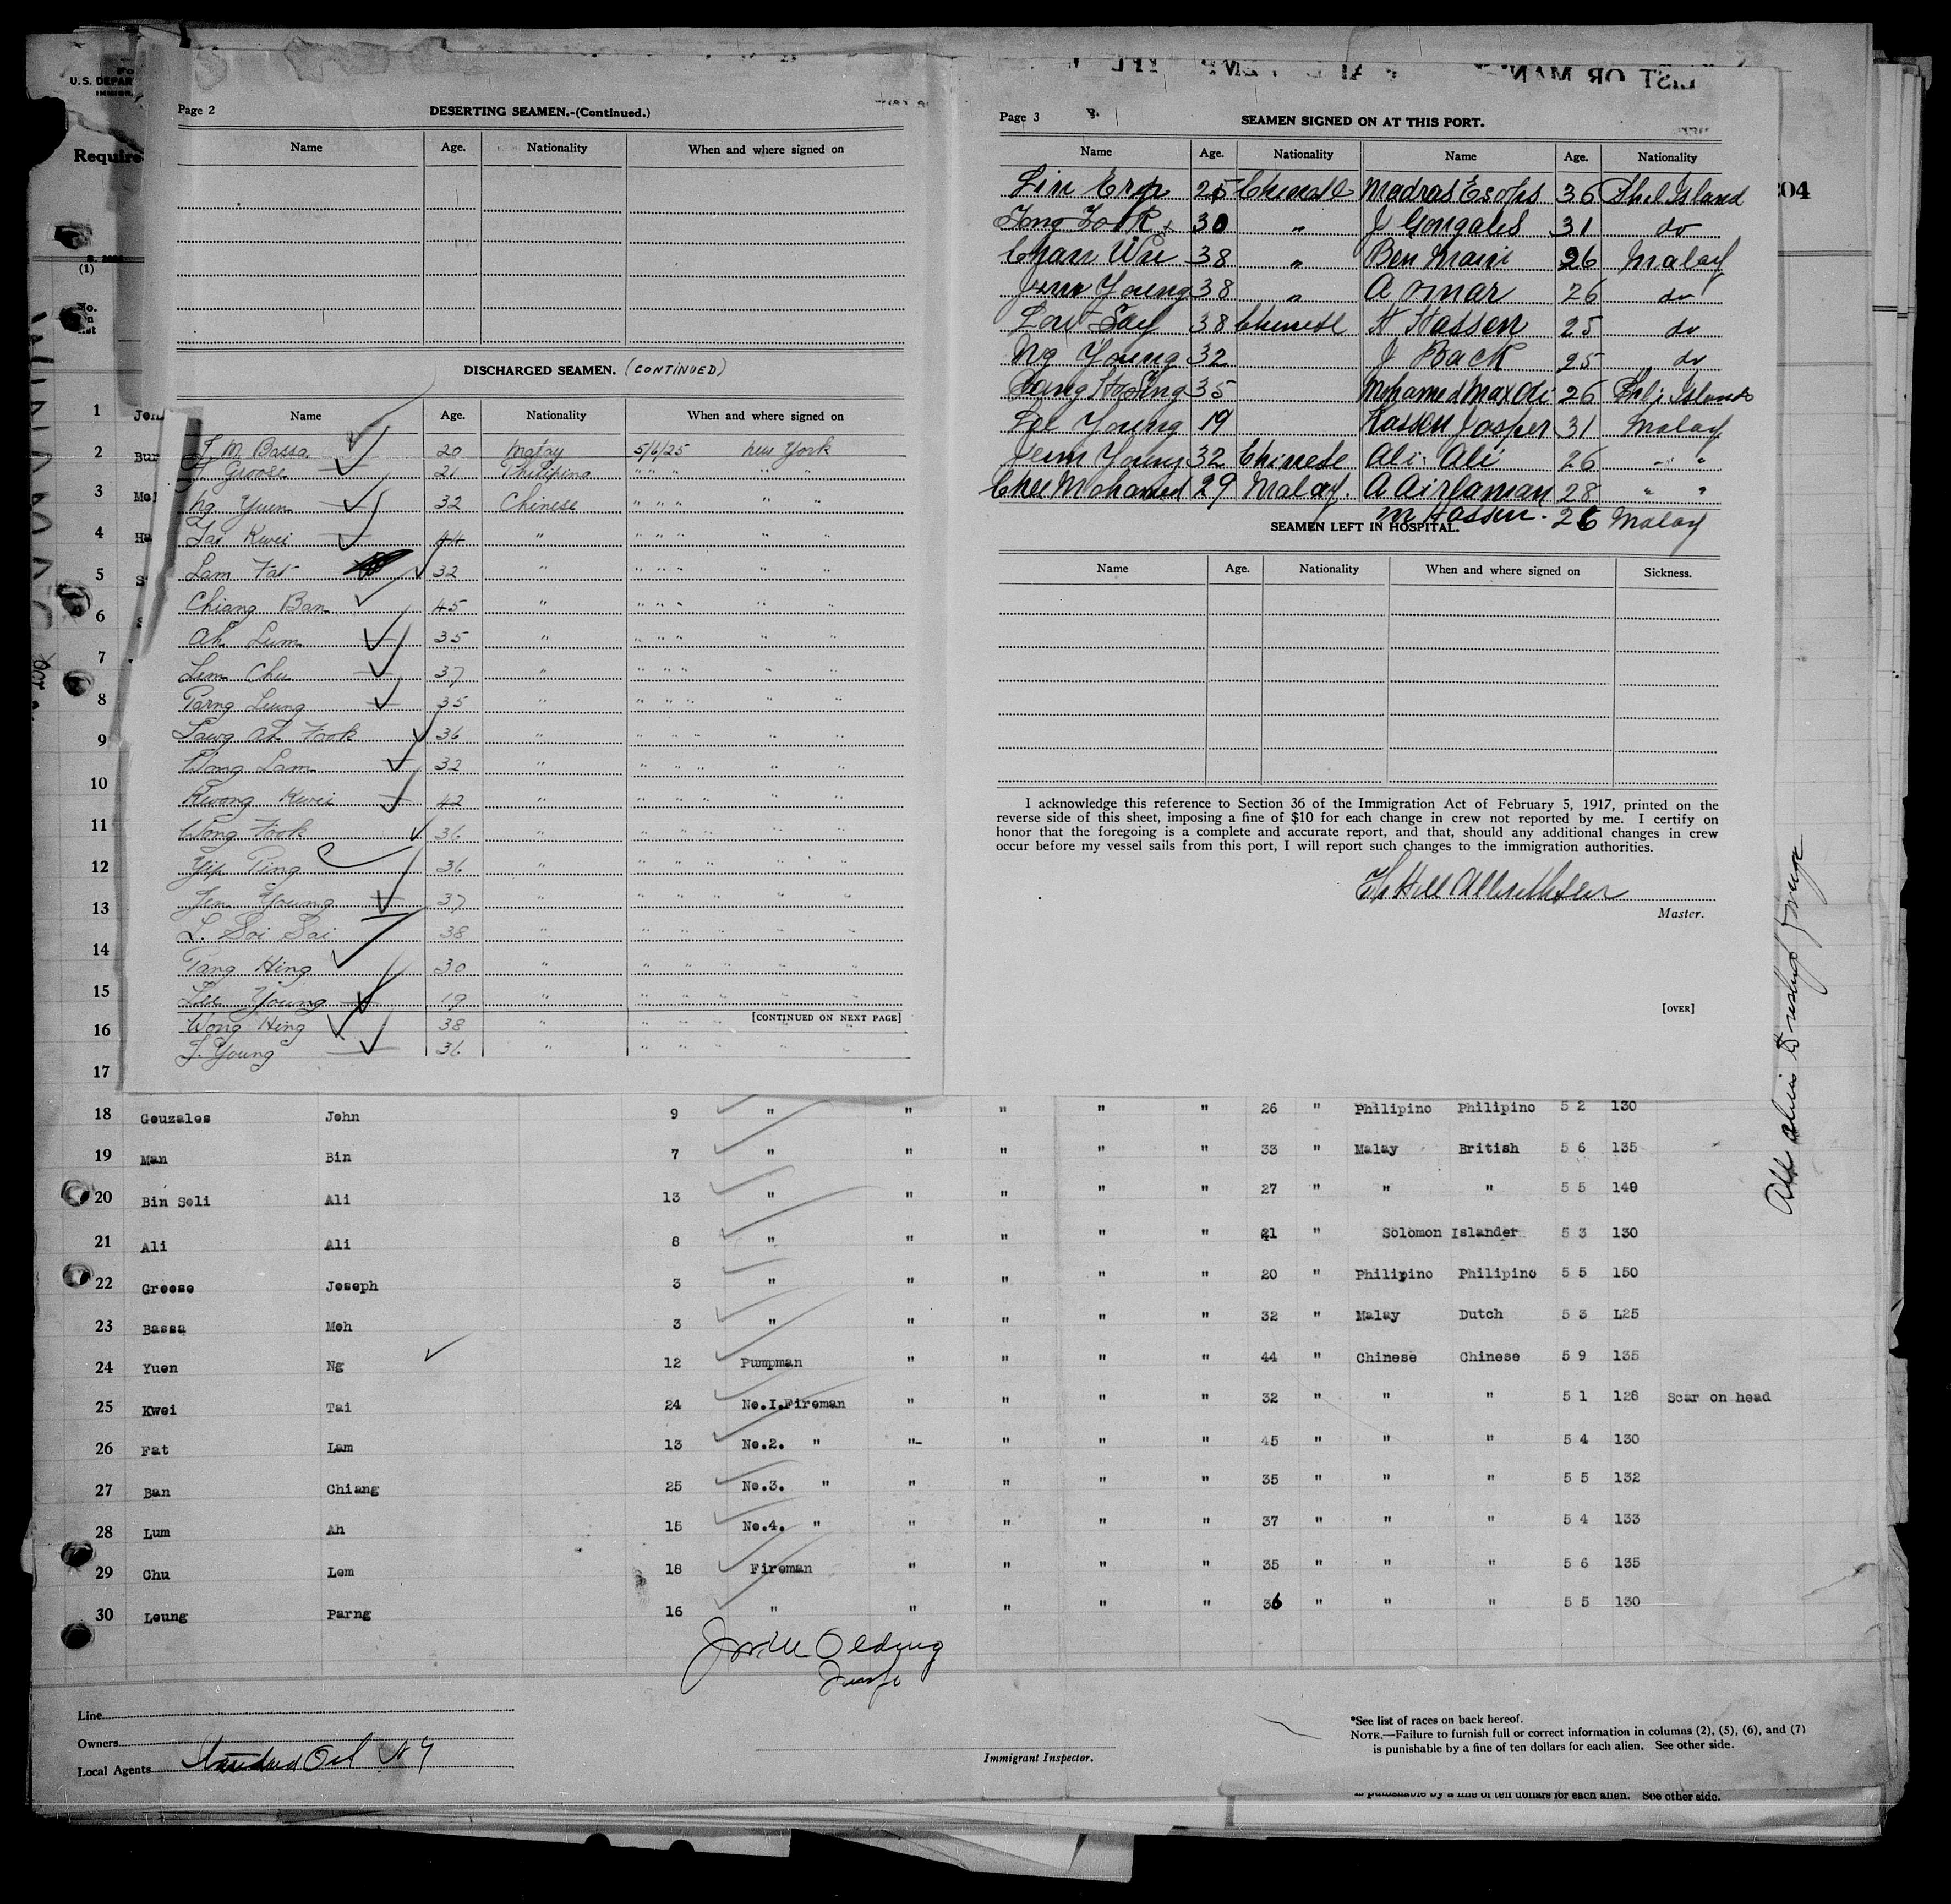 U.S. DEPAR
Require
Page 2
DESERTING SEAMEN.-(Continued.)
Name Age. Nationality When and where signed on
DISCHARGED SEAMEN. (CONTINUED)
Name Age. Nationality When and where signed on
J. M. Bassa 20 Malay 5/6/25 New York
J. Groose 21 Philipino " " " " "
Ng Yuen 32 Chinese " " " " "
Tai Kwei 44 " " " " " "
Lam Fat 32 " " " " " "
Chiang Ban 45 " " " " " "
Ah Lum 35 " " " " " "
Lem Chu 37 " " " " " "
Parng Leung 35 " " " " " "
Lawg Ah Fook 36 " " " " " "
Wong Lam 32 " " " " " "
Kwong Kwei 42 " " " " " "
Wong Fook 36 " " " " " "
Yip Ping 36 " " " " " "
Jen Young 37 " " " " " "
L. Soi Sai 38 " " " " " "
Tang Hing 30 " " " " " "
Lee Young 19 " " " " " "
[CONTINUED ON NEXT PAGE]
Wong Hing 38 " " " " " "
J. Young 36 " " " " " "
Page 3
SEAMEN SIGNED ON AT THIS PORT.
Name Age. Nationality Name Age. Nationality
Lin 25 Chinese Madras Esops 36 Phil Island
Tong Fook 30 " J Gongales 31 do
Chan Wu 38 " Ben Maini 26 Malay
Jem Young 38 " A Omar 26 do
Low Say 38 Chinese H Hassen 25 do
Ng Young 32 J Back 25 do
35 Mohamed Max Oli 26 Islands
Lee Young 19 Hassen Jasper 31 Malay
Jem Young 32 Chinese Ali Ali 26 " "
Chee Mohamed 29 Malay. A 28 " "
M Hassen. 26 Malay
SEAMEN LEFT IN HOSPITAL.
Name Age. Nationality When and where signed on Sickness.
I acknowledge this reference to Section 36 of the Immigration Act of February 5, 1917, printed on the
reverse side of this sheet, imposing a fine of $10 for each change in crew not reported by me. I certify on
honor that the foregoing is a complete and accurate report, and that, should any additional changes in crew
occur before my vessel sails from this port, I will report such changes to the immigration authorities.
Master.
[OVER]
204
1
2 Bur
3
4
5
6
7
8
9
10
11
12
13
14
15
16
17
18 Gouzales John 9 " " " " " 26 " Philipino Philipino 5 2 130
19 Man Bin 7 " " " " " 33 " Malay British 5 6 135
20 Bin Seli Ali 13 " " " " " 27 " " " 5 5 140
21 Ali Ali 8 " " " " " 21 " Solomon Islander 5 3 130
22 Greese Joseph 3 " " " " " 20 " Philipino Philipino 5 5 150
23 Bassa Meh 3 " " " " " 32 " Malay Dutch 5 3 L25
24 Yuen Ng 12 Pumpman " " " " 44 " Chinese Chinese 5 9 135
25 Kwei Tai 24 No.I.Fireman " " " " 32 " " " 5 1 128 Scar on head
26 Fat Lam 13 No.2. " "- " " " 45 " " " 5 4 130
27 Ban Chiang 25 No.3. " " " " " 35 " " " 5 5 132
28 Lum Ah 15 No.4. " " " " " 37 " " " 5 4 133
29 Chu Lem 18 Fireman " " " " 35 " " " 5 6 135
30 Leung Parng 16 " " " " " 36 " " " 5 5 130
Line
Owners
Local Agents Standard Oil N Y
Immigrant Inspector.
*See list of races on back hereof.
NOTE.—Failure to furnish full or correct information in columns (2), (5), (6), and (7)
is punishable by a fine of ten dollars for each alien. See other side.
is punishable by a fine of ten dollars for each alien. See other side.